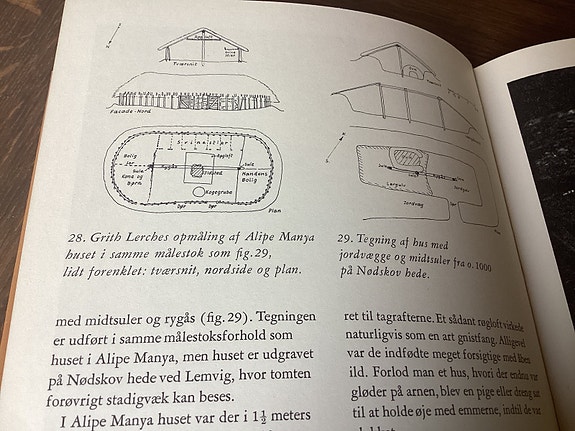 Røgloft
Tværsnit
Facade-Nord
Bolig
for
Kone og
Børn
Rygås
Røgloft
Ildsted
Kogegrube
Sule
Mandens
Bolig
Dør
Dør
Plan
Lergulv
Jordvæg
Dør
Plan
28. Grith Lerches opmåling af Alipe Manya
huset i samme målestok som fig. 29,
lidt forenklet: tværsnit, nordside og plan.
29. Tegning af hus med
jordvægge og midtsuler fra o. 1000
på Nødskov hede.
med midtsuler og rygås (fig. 29). Tegningen
er udført i samme målestoksforhold som
huset i Alipe Manya, men huset er udgravet
på Nødskov hede ved Lemvig, hvor tomten
forøvrigt stadigvæk kan beses.
I Alipe Manya huset var der i 1½ meters
ret til tagrafterne. Et sådant røgloft virkede
naturligvis som en art gnistfang. Alligevel
var de indfødte meget forsigtige med åben
ild. Forlod man et hus, hvori der endnu var
gløder på arnen, blev en pige eller dreng sat
til at holde øje med emmerne, indtil de var